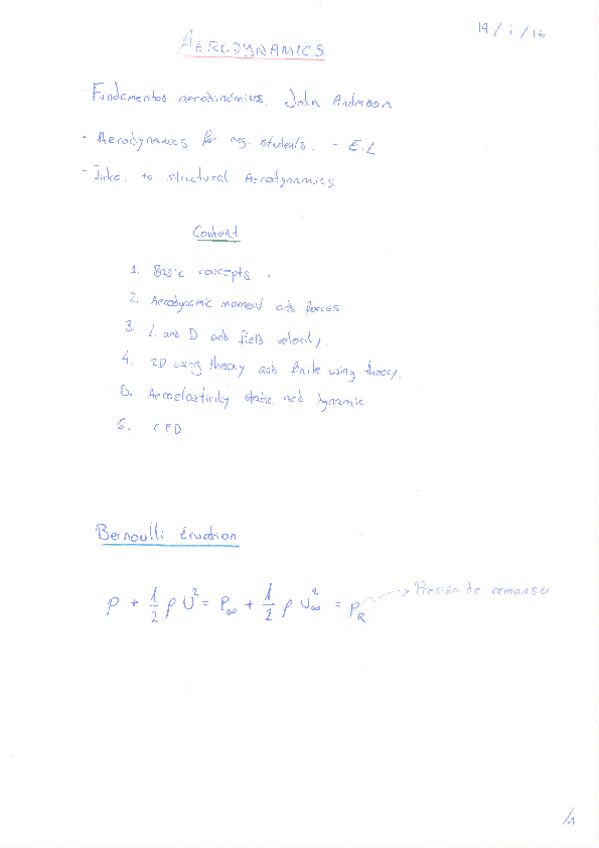 19/i/16
AERODYNAMICS
Fundamentos aerodinámicos. John Anderson
- Aerodynamics for eng. students. - E.L
- Intro. to structural Aerodynamics
Content
1. Basic concepts.
2. Aerodynamic moment and forces
3. L and D and field velocity.
4. 2D wing theory and finite wing theory.
5. Aeroelasticity static and dynamic
6. CFD
Bernoulli Eruation
p + 1/2 ρ U² = P∞ + 1/2 ρ U∞² = P_R → Presión de remanso
/1